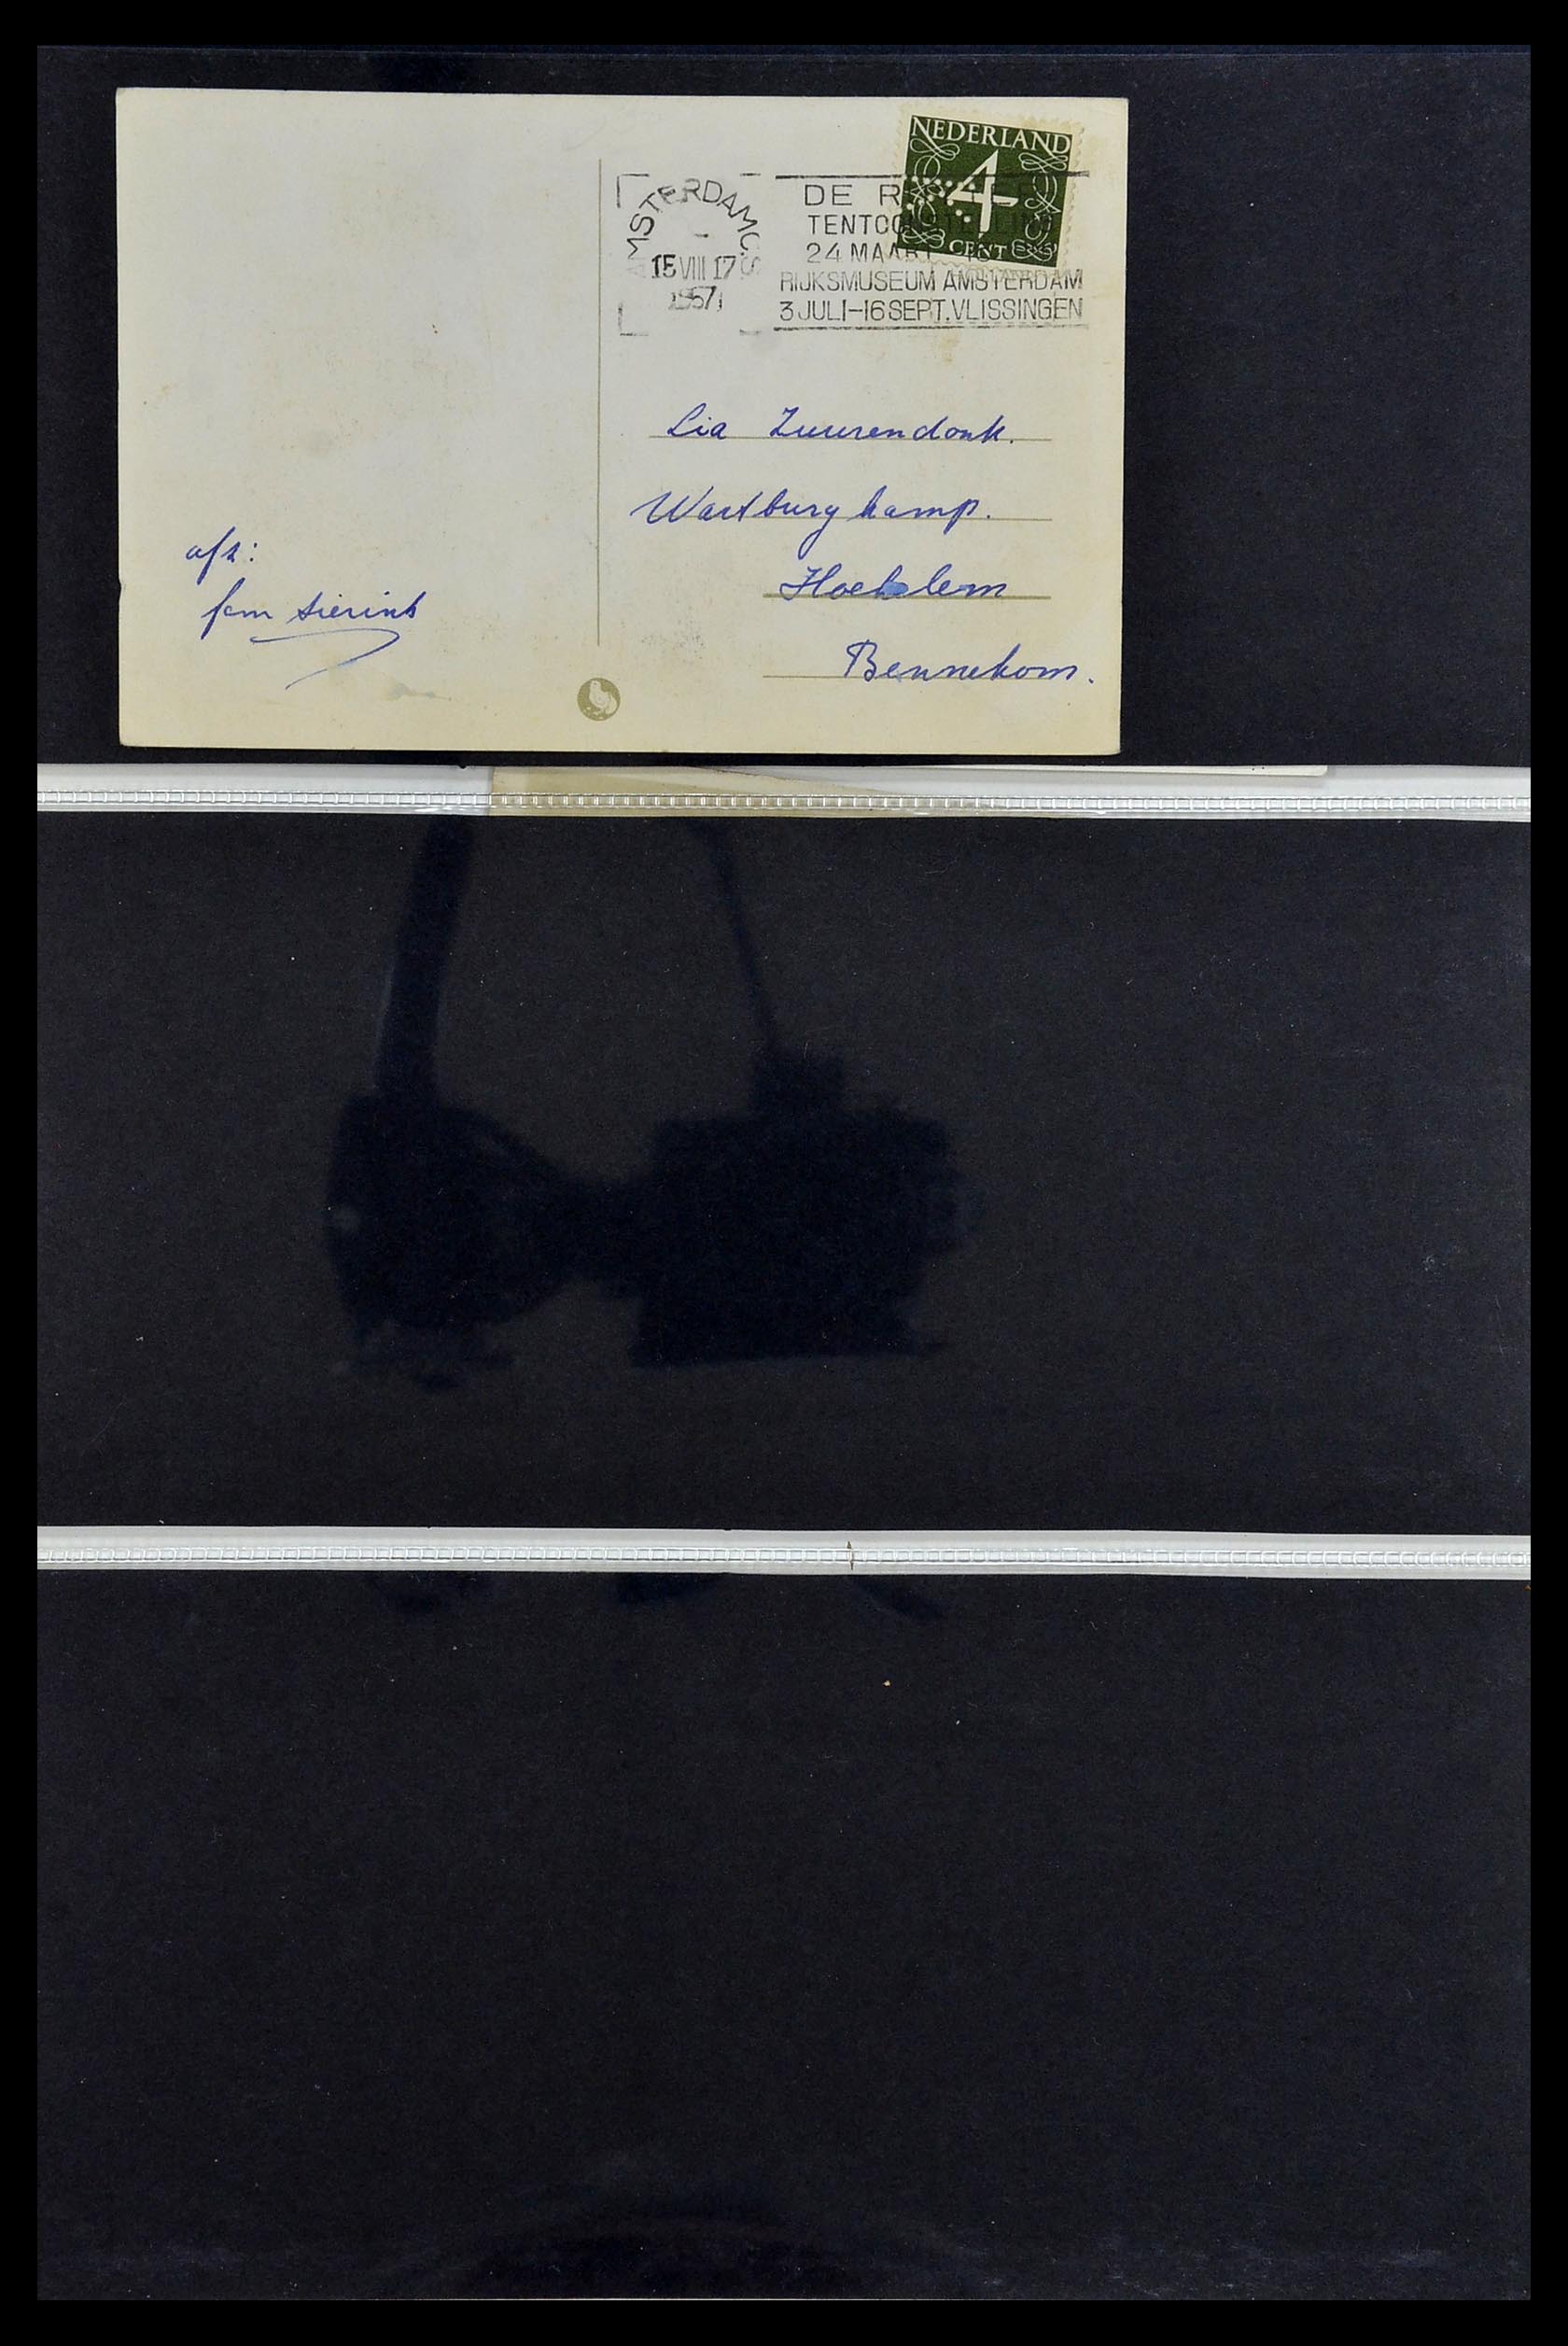 NEDERLAND
4
CENT
AMSTERDAM C.S
15 VIII 17
1957
DE
24 MAART
RIJKSMUSEUM AMSTERDAM
3 JULI-16 SEPT. VLISSINGEN
Lia Zuurendonk.
Wartburg kamp.
Hoekelem
Bennekom.
afz:
fam Sierink